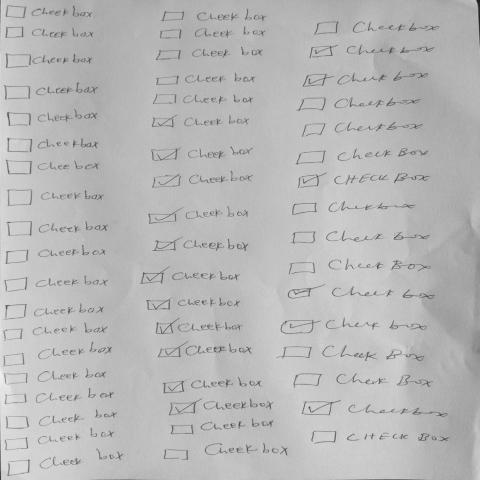 Cheek box
Cheek box
Cheekbox
Cheekbox
Cheekbox
Cheekbox
Chee box
Cheekbox
Cheekbox
Cheekbox
Cheek box
Cheekbox
Cheek box
Cheekbox
Cheek box
Cheek box
Cheek box
Cheek box
Cheek box
Cheek box
Cheek box
Cheek box
Cheek box
Cheek box
Cheek box
Cheek box
Cheek box
Cheek box
Cheekbox
Cheekbox
Cheekbox
Cheekbox
Cheekbox
Cheek box
Cheekbox
Cheek box
Cheek box
Check box
Check box
Check box
Check box
Check box
Check Box
CHECK Box
Check box
Check box
Check Box
Check box
Check box
Check Box
Check Box
Checkbox
CHECK Box